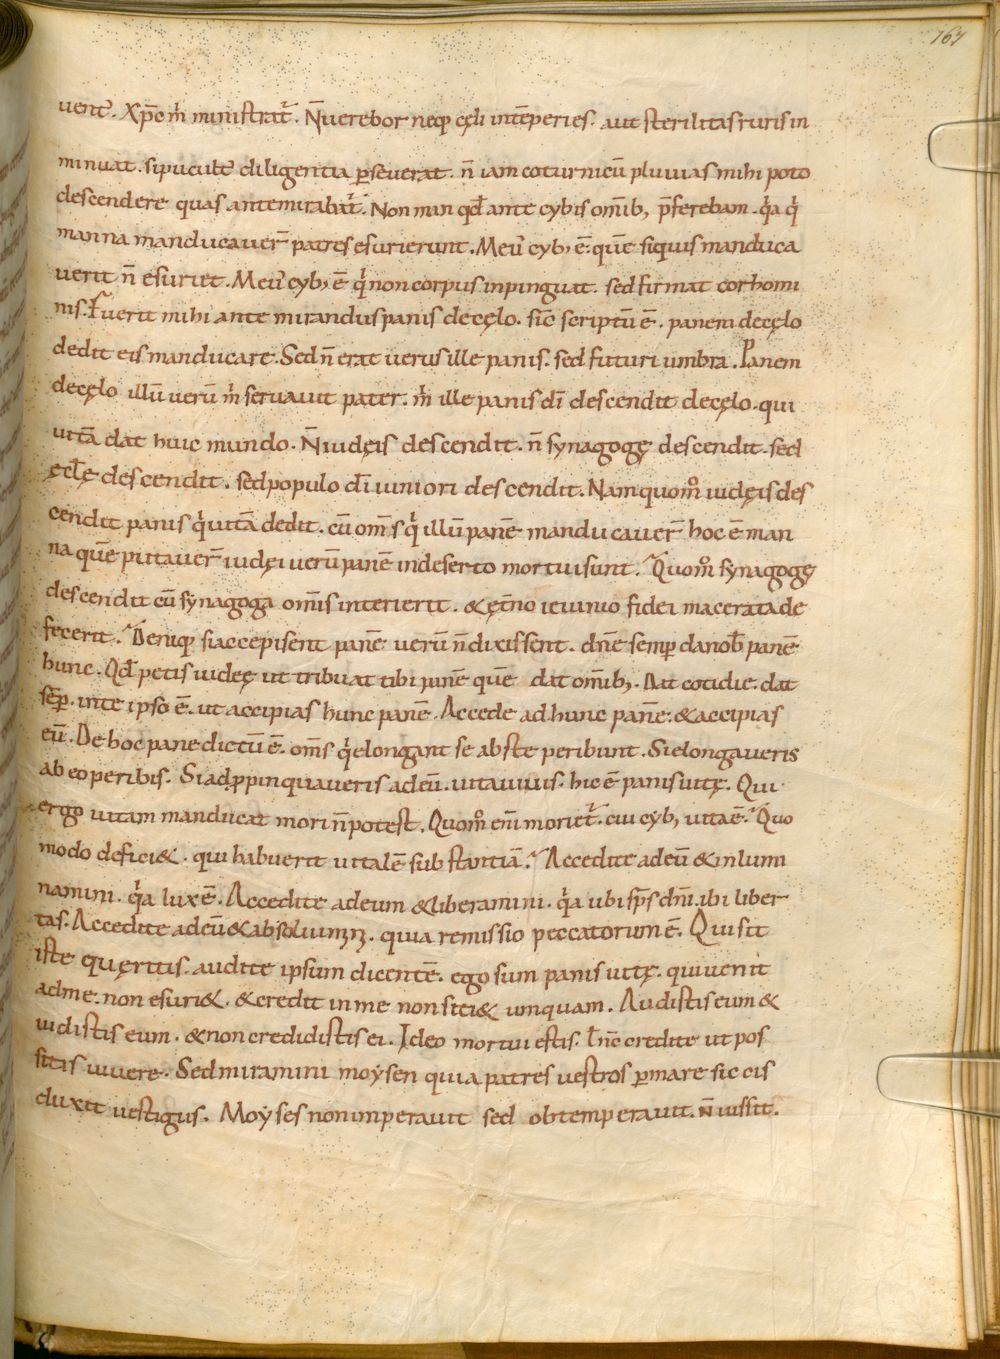 167
uent̄. Xp̄c m̄ ministrat̄. N̄ uerebor neq; cęli intēperies. aut sterilitas ruris in
minuat. si pu culte diligentia pseuerat. n̄ iam coturnicū pluuias mihi poto
descendere quas ante mirabat̄. Non man qd̄ ante cybis om̄ib, p̄ferebam. q̄a q̄
manna manducauer̄ patres esurierunt. Meu᷒ cyb, ē. quē siquis manduca
uerit n̄ esuriet. Meu᷒ cyb, ē q̄ non corpus inpinguat. sed firmat cor homi
nis. Fuerit mihi ante mirandus panis de cęlo. sic̄ scriptū ē. panem de cęlo
dedit eis manducare. Sed n̄ erat uerus ille panis. sed futuri umbra. Panem
de cęlo illū uerū m̄ seruauit pater. m̄ ille panis dī descendit de cęlo. qui
uitā dat huic mundo. N̄ iudęis descendit. n̄ synagogę descendit. sed
ęcl̄ę descendit. sed populo dī iuniori descendit. Nam quom̊ iudęis des
cendit panis q̄ uitā dedit. cū om̄s q̄ illū panē manducauer̄ hoc ē man
na quē putauer̄ iudęi uerū panē in deserto mortui sunt. Quom̊ synagogę
descendit cū synagoga om̄is interierit. & ęt̄no ieiunio fidei macerata de
fecerit. Deniq; si accepisent panē uerū n̄ dixissent. dn̄e semp da nob̄ panē
hunc. Qd̄ petis iudeę ut tribuat tibi panē quē dat om̄ib,. dat cotidie. dat
sēp. in te ipso ē. ut accipias hunc panē. Accede ad hunc panē. & accipias
eū. De hoc pane dictū ē. om̄s q̄ elongant se abs te peribunt. Si elongaueris
ab eo peribis. Si adppinquaueris ad eū. uita uiuis. hic ē panis uitę. Qui
ergo uitam manducat mori n̄ potest. Quom̊ eni᷒ moriet̄. cui cyb, uita ē. Quo
modo defici&. qui habuerit uitalē substantiā. Accedite ad eū & inlumi
namini. q̄a lux ē. Accedite ad eum & liberamini. q̄a ubi sp̄s dn̄i. ibi liber
tas. Accedite ad eū & absoluimini. quia remissio peccatorum ē. Qui sit
iste quęritis. audite ipsum dicentē. ego sum panis uitę. qui uenit
ad me. non esuri&. & credit in me non siti& unquam. Audistis eum &
uidistis eum. & non credidistis ei. Ideo mortui estis. l̄ nc̄ credite ut pos
sitis uiuere. Sed miramini moẏsen quia patres uestros p mare sic eis
duxit uestigiis. Moẏses non imperauit sed obtemperauit. n̄ iussit.